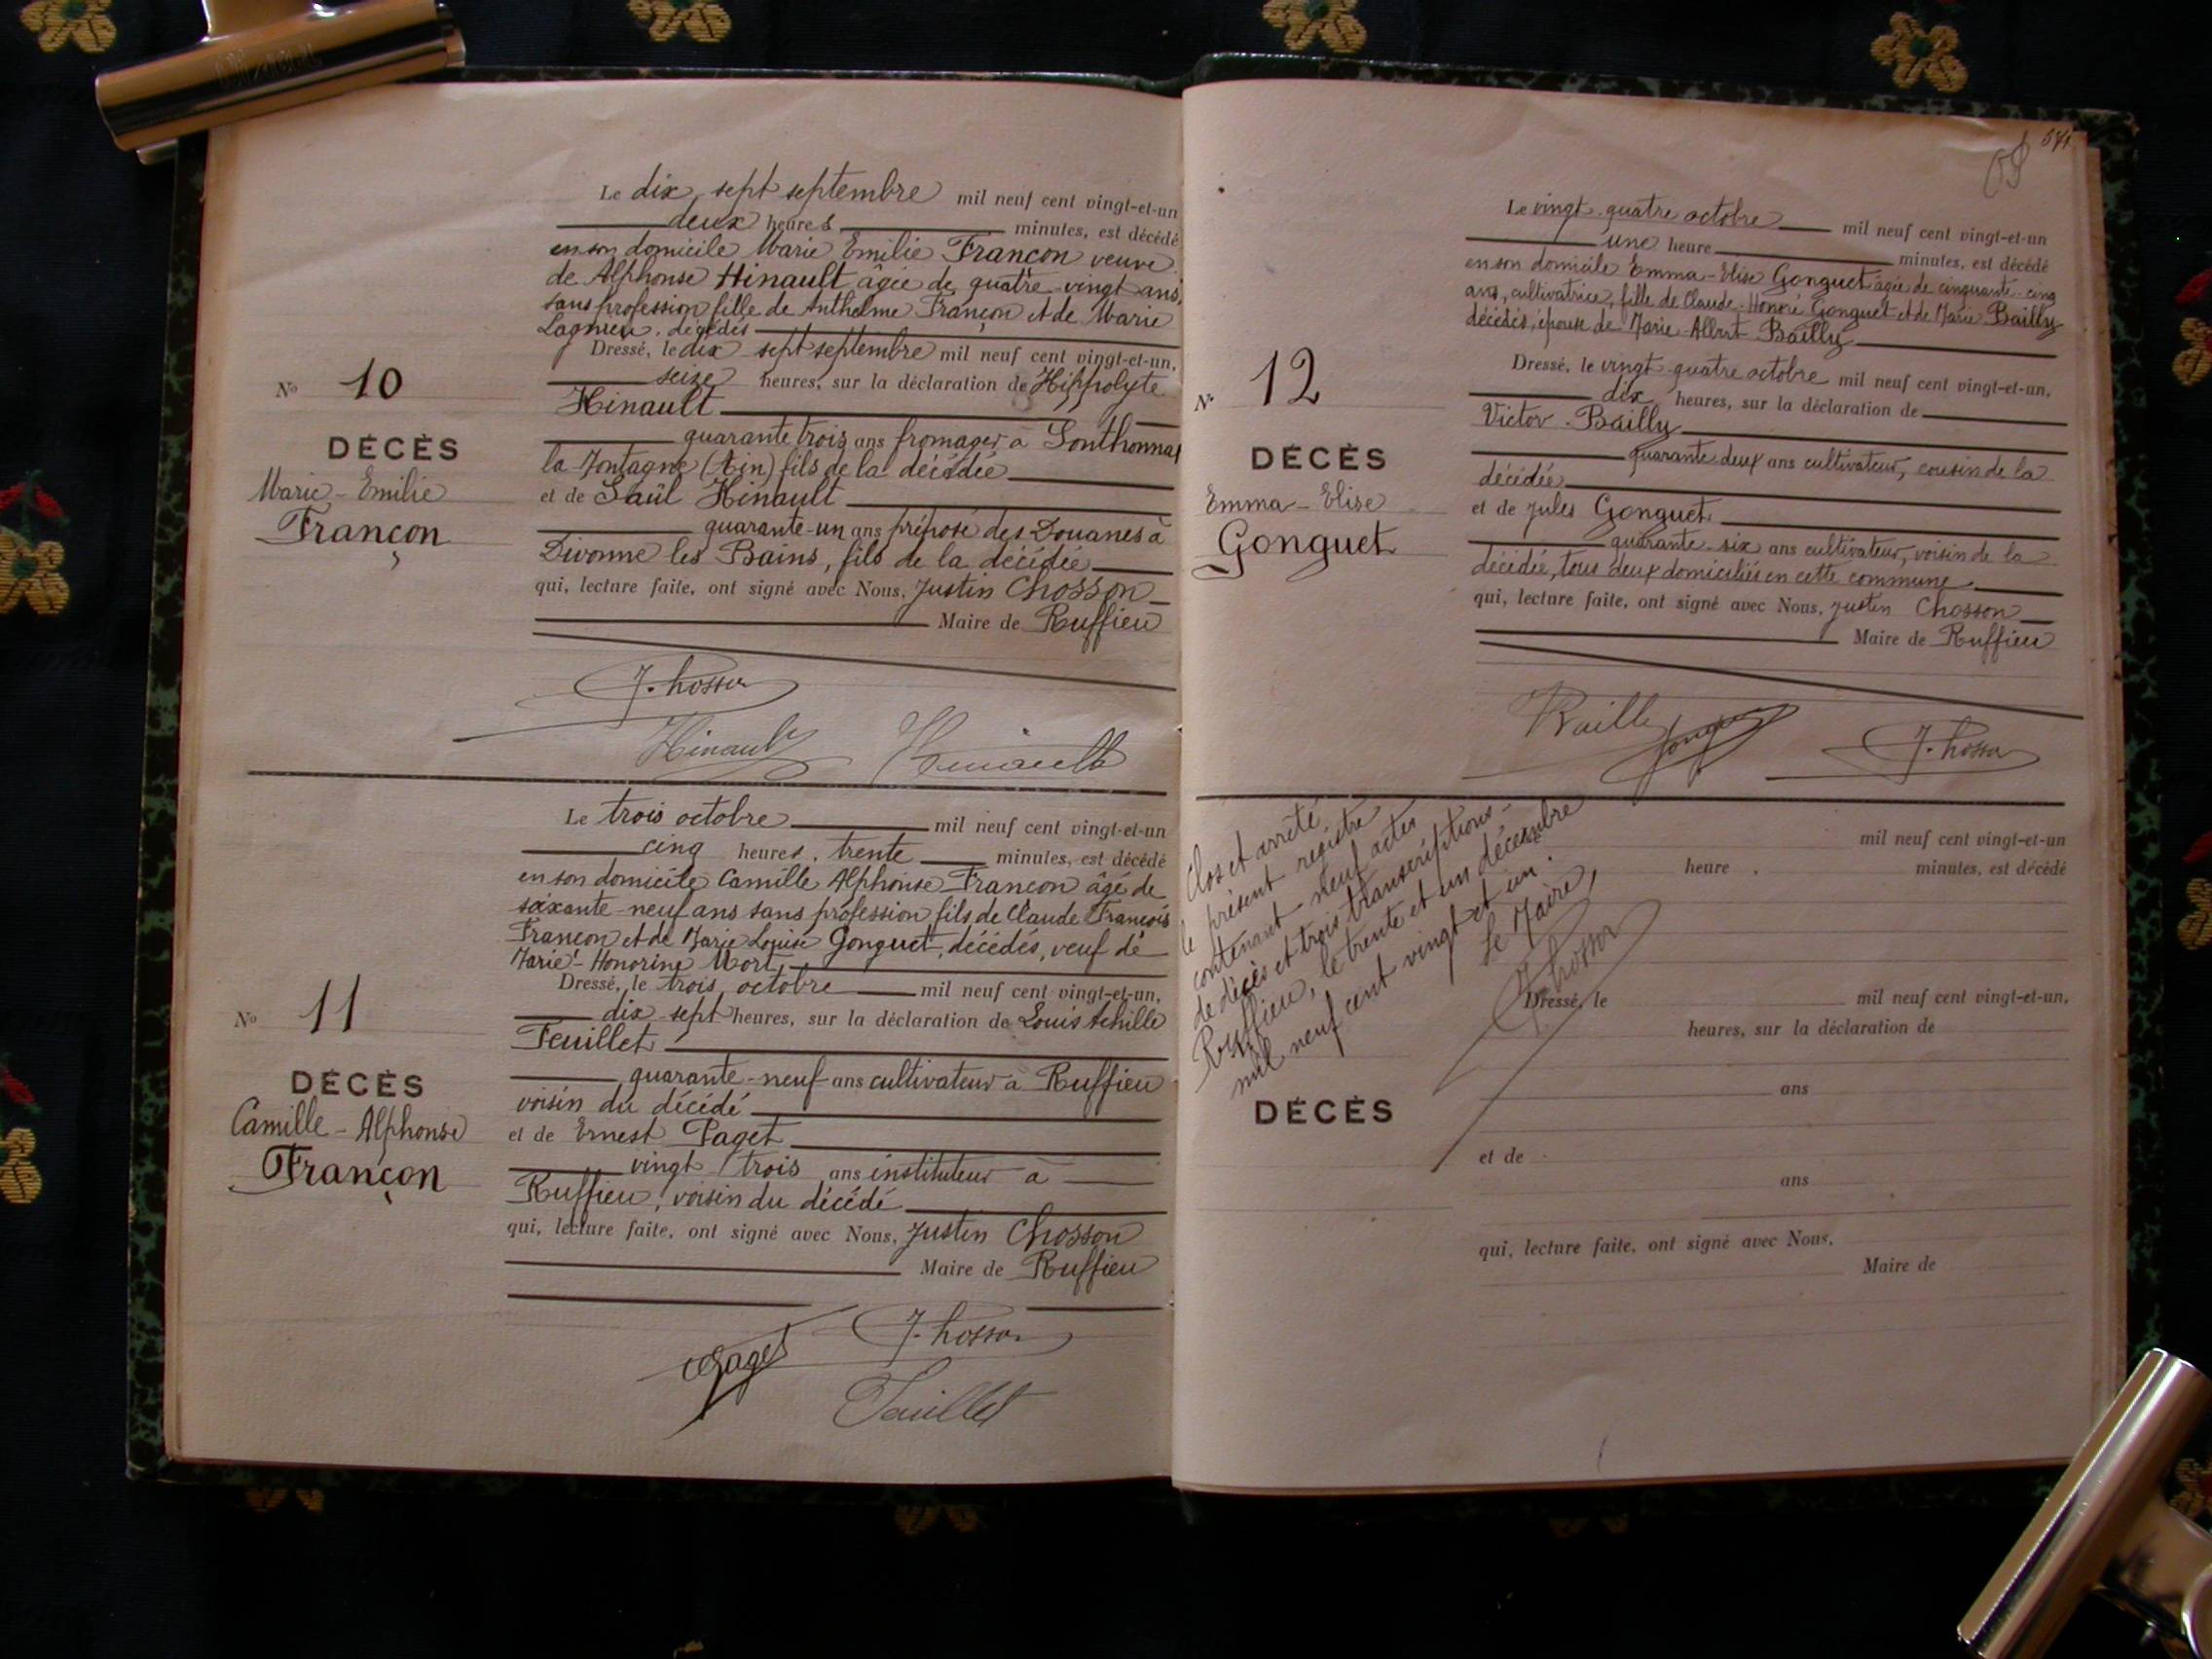 Le dix sept septembre mil neuf cent vingt-et-un
deux heures minutes, est décédé
en son domicile Marie Emilie Françon veuve
de Alphonse Hinault âgée de quatre-vingt ans,
sans profession fille de Anthelme Françon et de Marie
Lagnieu, décédés
Dressé, le dix sept septembre mil neuf cent vingt-et-un,
seize heures, sur la déclaration de Hippolyte
Hinault
quarante trois ans fromager à Songthonnax
la Montagne (Ain) fils de la décédée
et de Saül Hinault
quarante-un ans préposé des Douanes à
Divonne les Bains, fils de la décédée
qui, lecture faite, ont signé avec Nous, Justin Chosson
Maire de Ruffieu
No 10
DÉCÈS
Marie-Emilie
Françon
J. Chosson
Hinault Hinault
Le trois octobre mil neuf cent vingt-et-un
cinq heures, trente minutes, est décédé
en son domicile Camille Alphonse Françon âgé de
soixante-neuf ans sans profession fils de Claude François
Françon et de Marie Louise Gonguet, décédés, veuf de
Marie-Honorine Mort,
Dressé, le trois octobre mil neuf cent vingt-et-un,
dix-sept heures, sur la déclaration de Louis Achille
Feuillet
quarante-neuf ans cultivateur à Ruffieu
voisin du décédé
et de Ernest Paget
vingt trois ans instituteur à
Ruffieu, voisin du décédé
qui, lecture faite, ont signé avec Nous, Justin Chosson
Maire de Ruffieu
No 11
DÉCÈS
Camille-Alphonse
Françon
J. Chosson
EPaget
Feuillet
Le vingt-quatre octobre mil neuf cent vingt-et-un
une heure minutes, est décédé
en son domicile Emma-Elise Gonguet âgée de cinquante-cinq
ans, cultivatrice, fille de Claude-Honoré Gonguet et de Marie Bailly
décédés, épouse de Marie-Albert Bailly
Dressé, le vingt-quatre octobre mil neuf cent vingt-et-un,
dix heures, sur la déclaration de
Victor Bailly
quarante-deux ans cultivateur, cousin de la
décédée
et de Jules Gonguet
quarante-six ans cultivateur, voisin de la
décédée, tous deux domiciliés en cette commune
qui, lecture faite, ont signé avec Nous, Justin Chosson
Maire de Ruffieu
No 12
DÉCÈS
Emma-Elise
Gonguet
Bailly Gonguet J. Chosson
Clos et arrêté
le présent registre
contenant neuf actes
de décès et trois transcriptions.
Ruffieu, le trente et un décembre
mil neuf cent vingt et un.
Le Maire,
J. Chosson
mil neuf cent vingt-et-un
heure minutes, est décédé
Dressé, le mil neuf cent vingt-et-un,
heures, sur la déclaration de
ans
DÉCÈS
et de
ans
qui, lecture faite, ont signé avec Nous,
Maire de